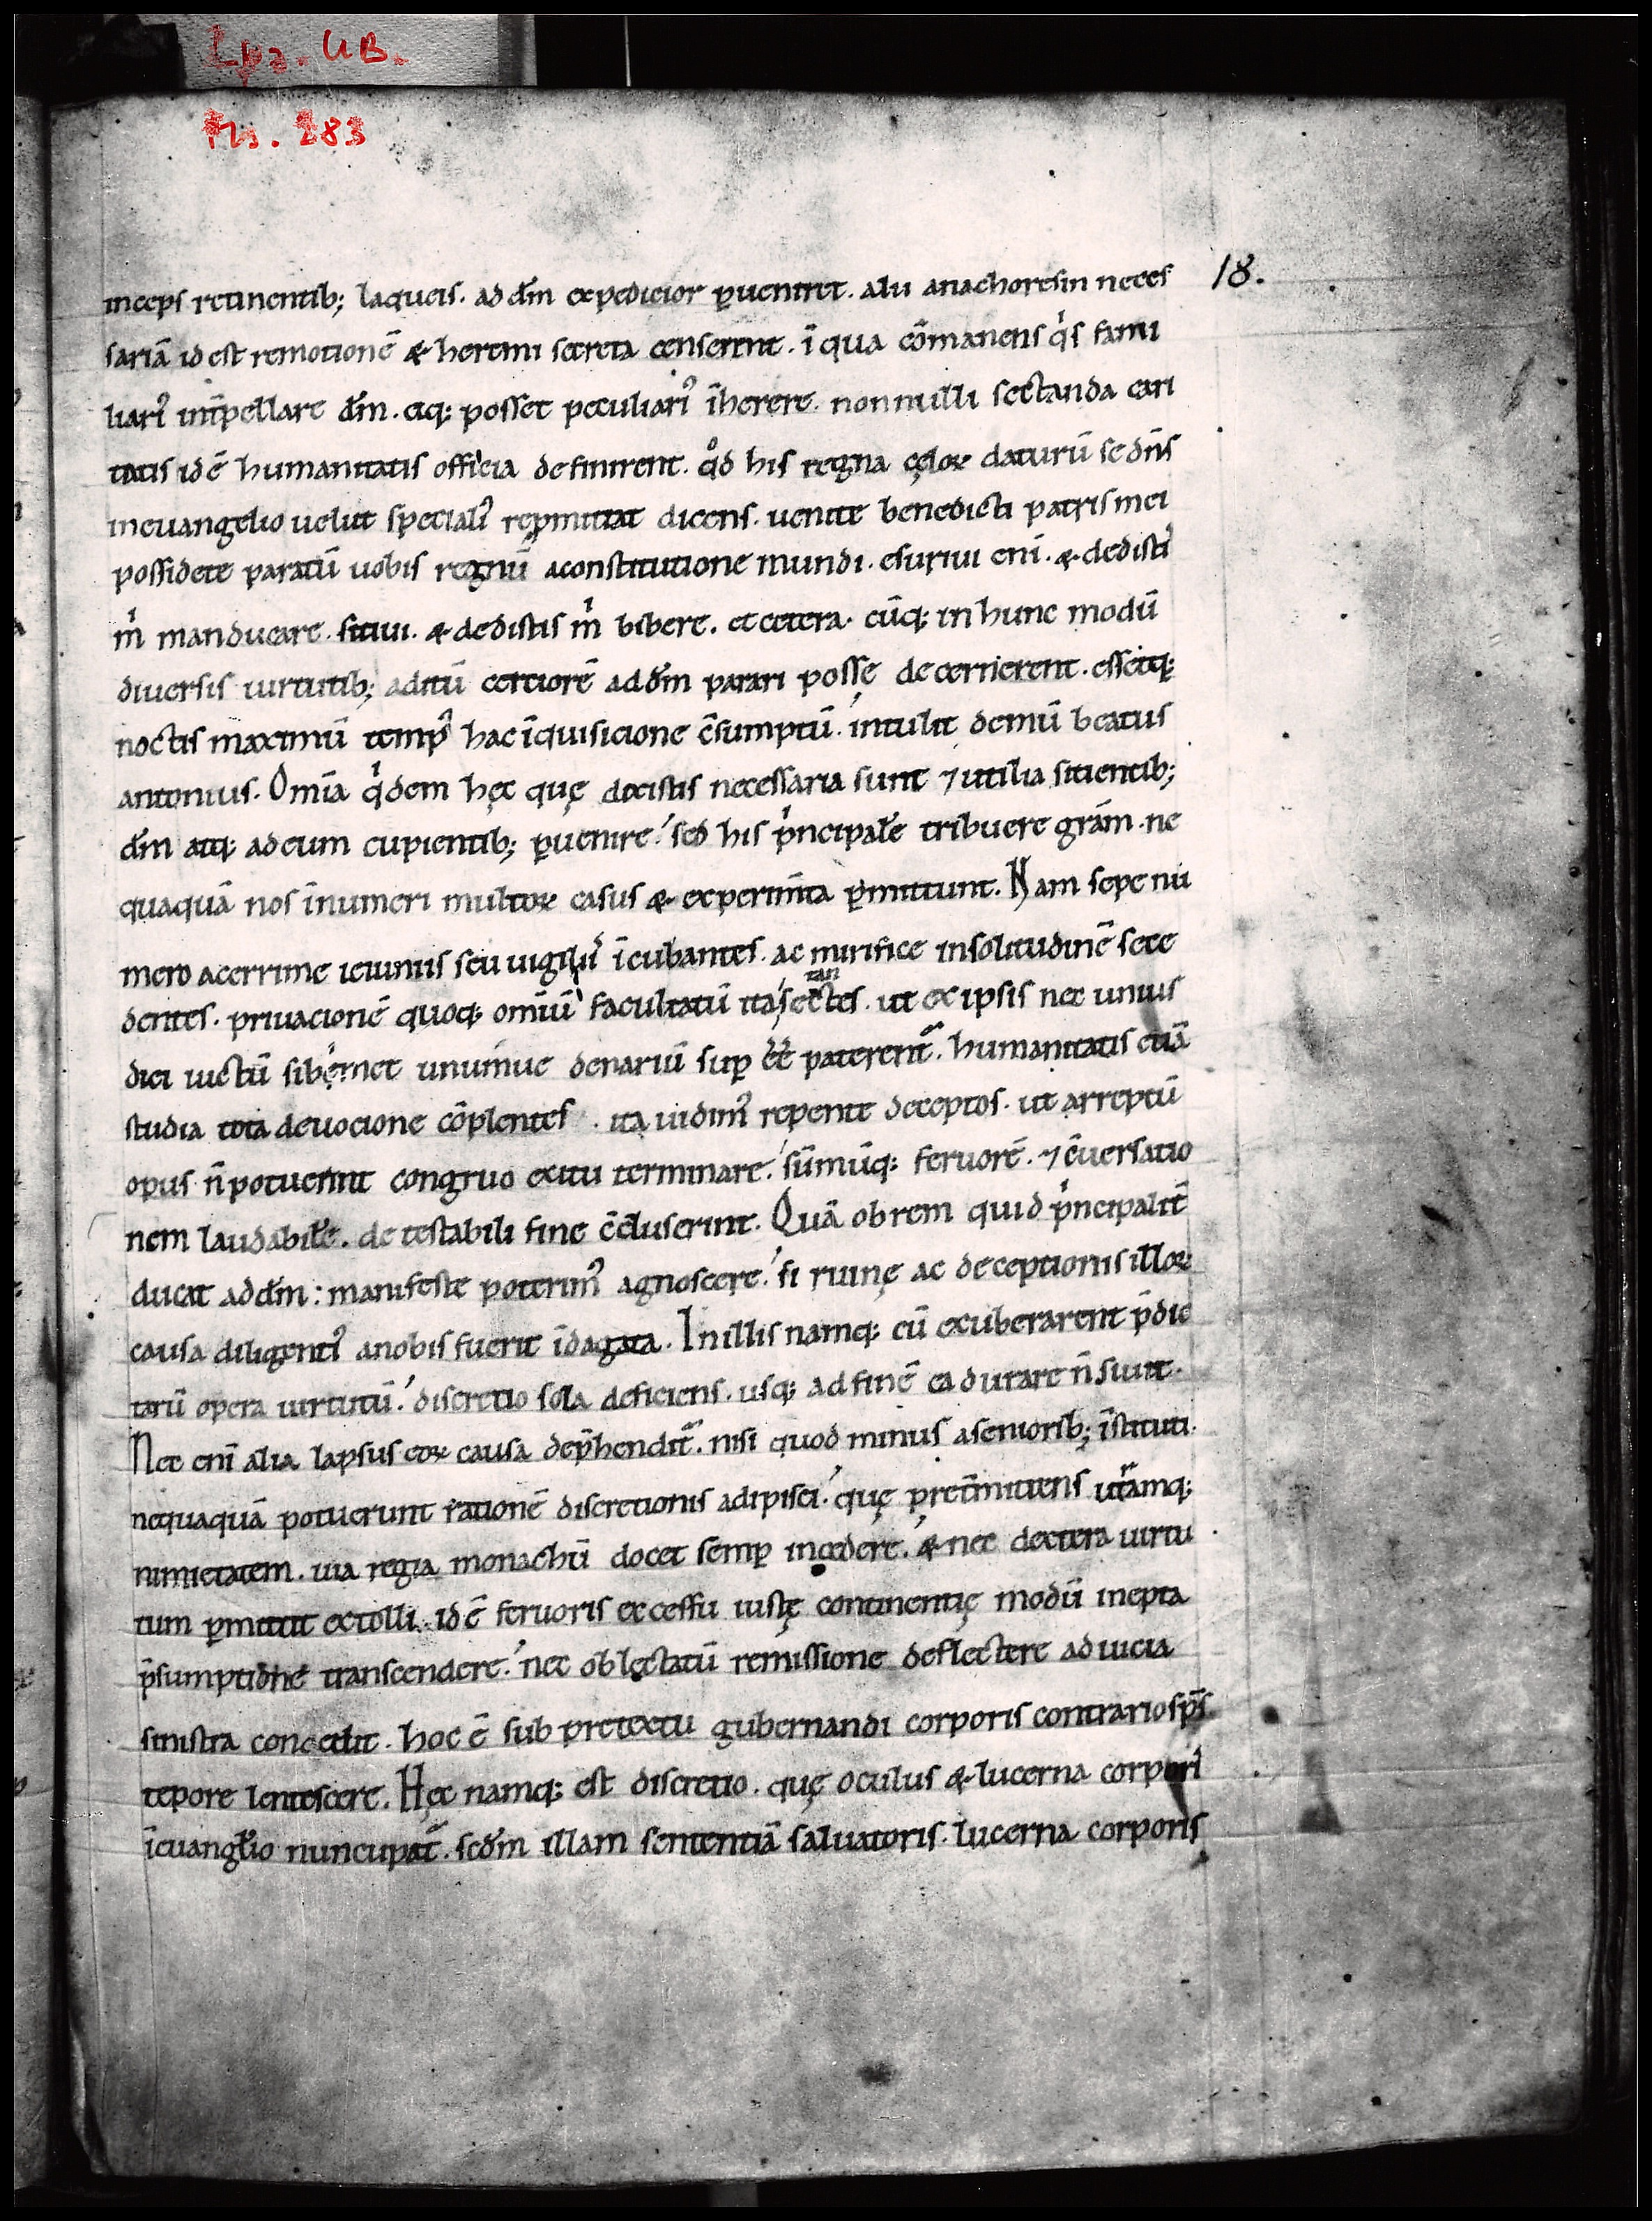 Lpz. UB.
Ms. 283
18.
inceps retinentib; laqueis. ad dm̄ expedicior ꝑueniret. alii anachoresin neces
sariā id est remotionē & heremi secreta censerent. ī qua cōmanens qͥs fami
liariꝰ int̄pellare dm̄. eiq; posset peculiariꝰ īherere. nonnulli sectanda cari
tatis id ē humanitatis officia definirent. qͦd his regna cęloꝝ daturū se dn̄s
ineuangelio uelut specialiꝰ repmittat dicens. uenite benedicti patris mei
possidete paratū uobis regnū aconstitutione mundi. esuriui enī. & dedisti
m̊ manducare. sitiui. & dedistis m̊ bibere. et cetera. cūq; in hunc modū
diuersis uirtutib; aditū certiorē ad dm̄ parari posse decernerent. essetq;
noctis maximū tempꝰ hac īquisicione c̄sumptū. intulit demū beatus
antonius. Omīa qͥdem hęc quę dixistis necessaria sunt ⁊ utilia sitientib;
dm̄ atq; ad eum cupientib; ꝑuenire. sed his pͥncipalē tribuere grām. ne
quaquā nos īnumeri multoꝝ casus & experim̄ta ꝑmittunt. Nam sepe nu
mero acerrime ieiuniis seu uigiliis īcubantes. ac mirifice insolitudinē sece
dentes. priuacionē quoq; omīū facultatū ita sectantes. ut ex ipsis nec unius
diei uictū sibemet unumue denariū suꝑ ēe paterent᷑. humanitatis etiā
studia tota deuocione cōplentes. ita uidimꝰ repente deceptos. ut arreptū
opus n̄ potuerint congruo exitu terminare. sūmūq; feruorē. ⁊ c̄uersatio
nem laudabilē. detestabili fine c̄cluserint. Quā obrem quid pͥncipalit̄
ducat ad dm̄: manifeste poterimꝰ agnoscere. si ruinę ac deceptionis illoꝝ
causa diligentiꝰ anobis fuerit īdagata. In illis namq; cū exuberarent p̄dic
tarū opera uirtutū. discretio sola deficiens. usq; ad finē ea durare n̄ siuit.
Nec enī alia lapsus eoꝝ causa dep̄hendit᷑. nisi quod minus asenioribꝫ īstituti.
nequaquā potuerunt rationē discretionis adipisci. quę pret̄mittens utramq;
nimietatem. uia regia monachū docet semꝑ incedere. & nec dextera uirtu
tum ꝑmittit extolli. id ē feruoris excessu iustę continentię modū inepta
p̄sumptione transcendere. nec oblectatū remissione deflectere ad uicia
sinistra concedit. hoc ē sub pretextu gubernandi corporis contrario sp̄s
tepore lentescere. Hęc namq; est discretio. quę oculus & lucerna corpori
īeuanglio nuncupat᷑. scdm̄ illam sententiā saluatoris. lucerna corporis